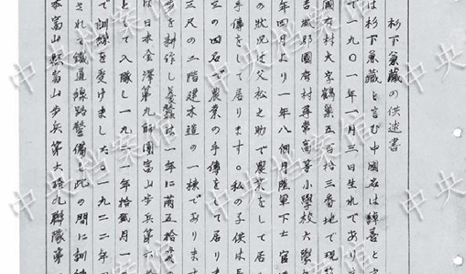 杉下兼蔵の供述書
は杉下兼蔵と言ひ中國名は
て一九〇一年一月三日生れであり
國府村大字鶴巢五百拾三番地で現
吉城郡國府村尋常高等小學校大學
年四月より一年八個月陸軍下士官
の状況は父松之助で農業をして居
手傳をして居ります。私の子供は長
三の四名で農業の手傳をして
三尺の二階建木造の一棟であります
を耕作し養蚕は一年に五拾
は日本金澤第九師團富山歩兵第六
して入隊し一九二一年拾貳月一
で訓練を受けました。一九二二年四
されて鐵道線路警備と此の間に訓練
本富山縣富山歩兵第六拾九聯隊第
中央档案馆